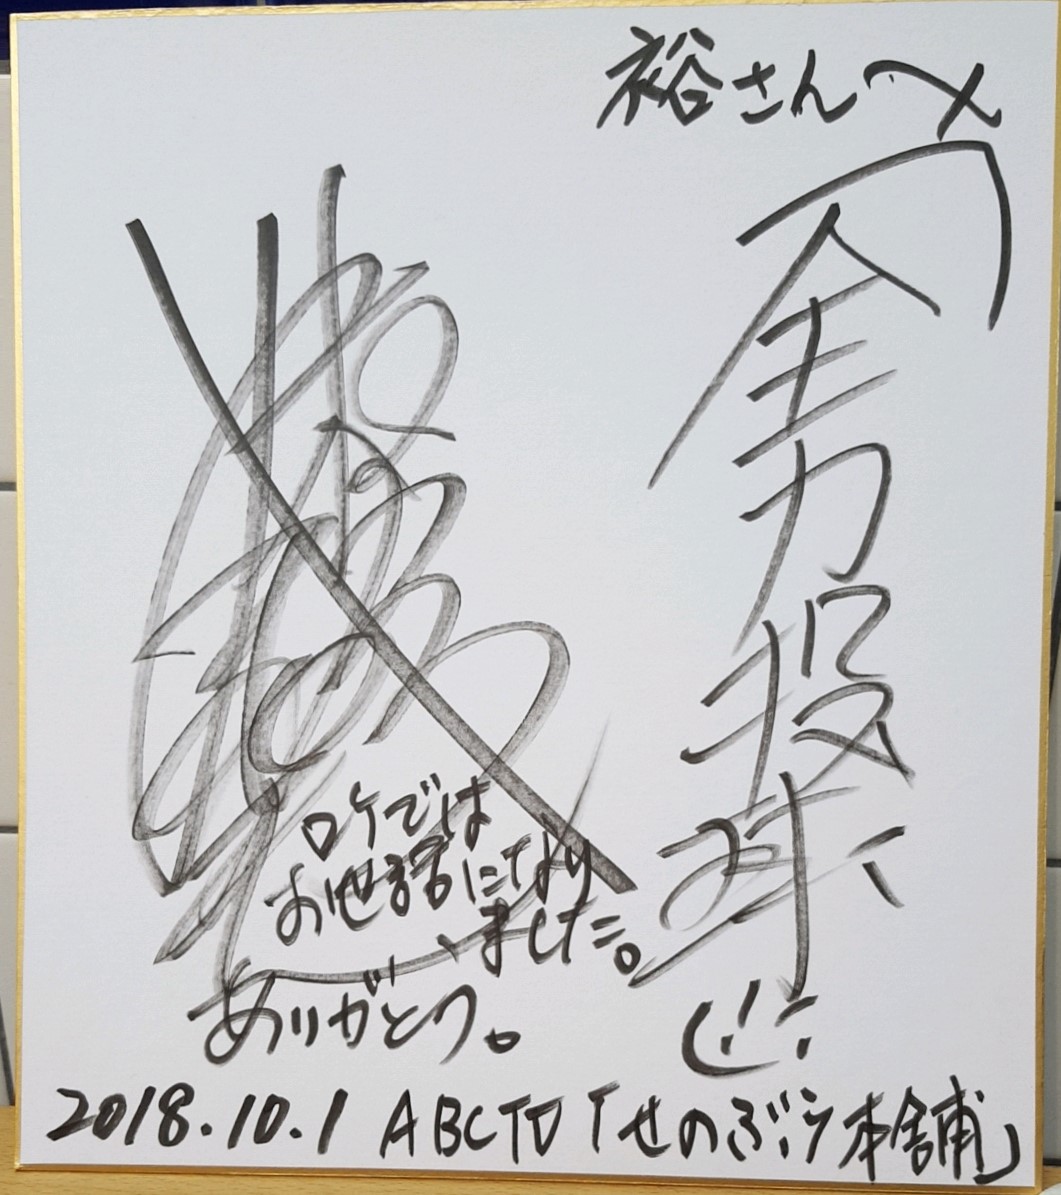 裕さんへ
全力投球
ロケでは
お世話になり
ました。
ありがとう。
2018.10.1 ABCTV「せのぶら本舗」